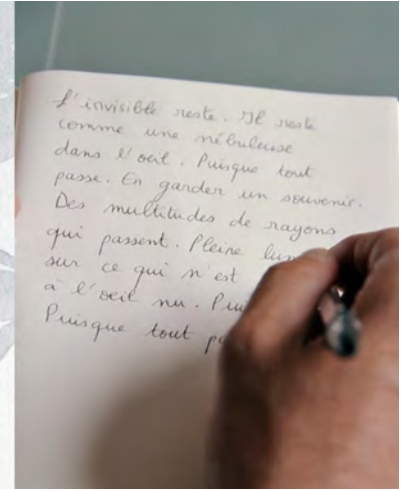 L'invisible reste. Il reste
comme une nébuleuse
dans l'oeil. Puisque tout
passe. En garder un souvenir.
Des multitudes de rayons
qui passent. Pleine
sur ce qui n'est
à l'oeil nu.
Puisque tout